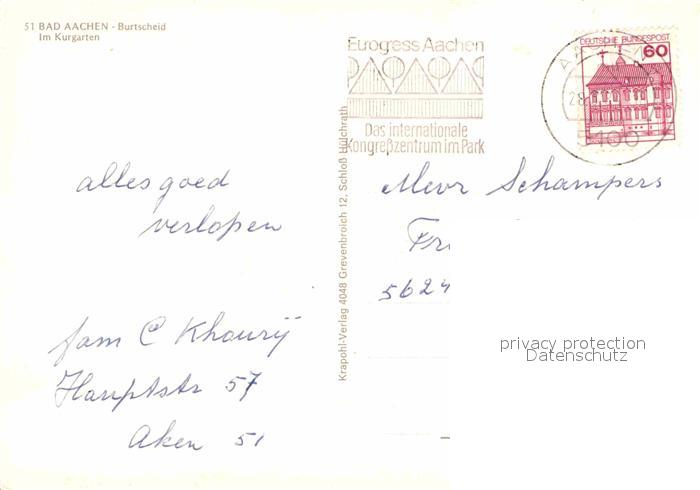 51 BAD AACHEN - Burtscheid
Im Kurgarten
Eurogress Aachen
Das internationale
Kongreßzentrum im Park
DEUTSCHE BUNDESPOST
60
alles goed
verlopen
fam C Khourÿ
Hauptstr 57
Aken 51
Krapohl-Verlag 4048 Grevenbroich 12, Schloß Hülchrath
Mevr Schampers
5624
privacy protection
Datenschutz